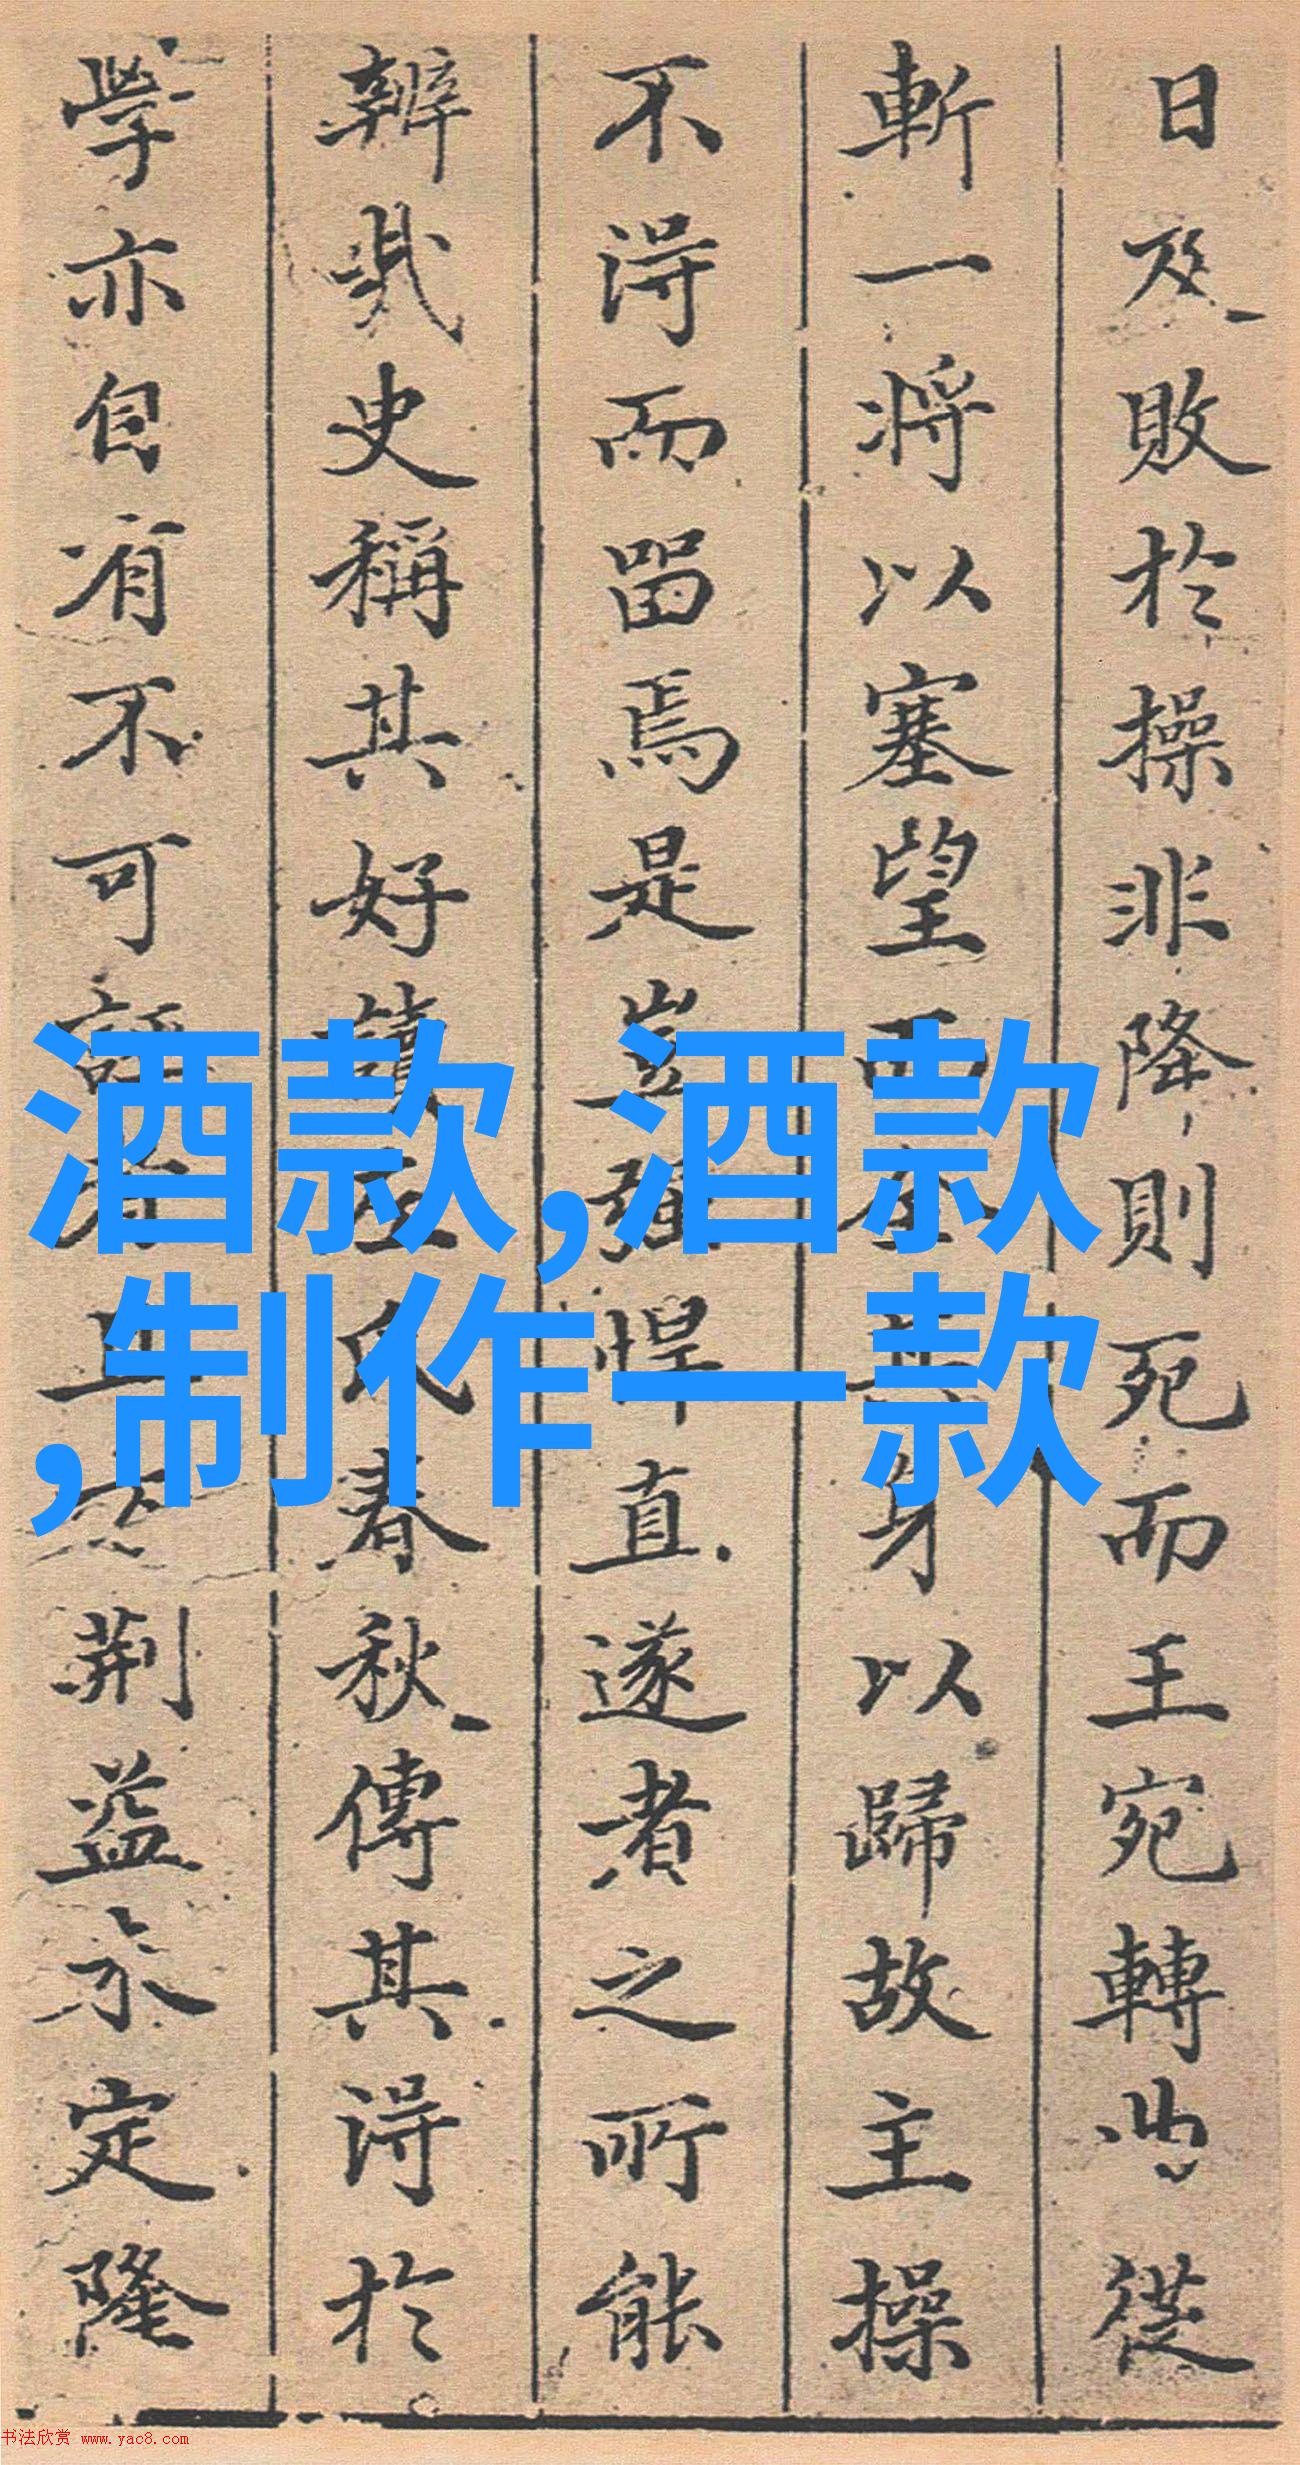 日及敗於操非降則死而王宛轉曲從
斬一將以塞望而全其身以歸故主操
不得而留焉是豈強悍直遂者之所能
辨哉史稱其好讀左氏春秋傳其得於
學亦自有不可誣者且夫荊益未定隆
酒款,酒款
,制作一款
书法欣赏 www.yac8.com